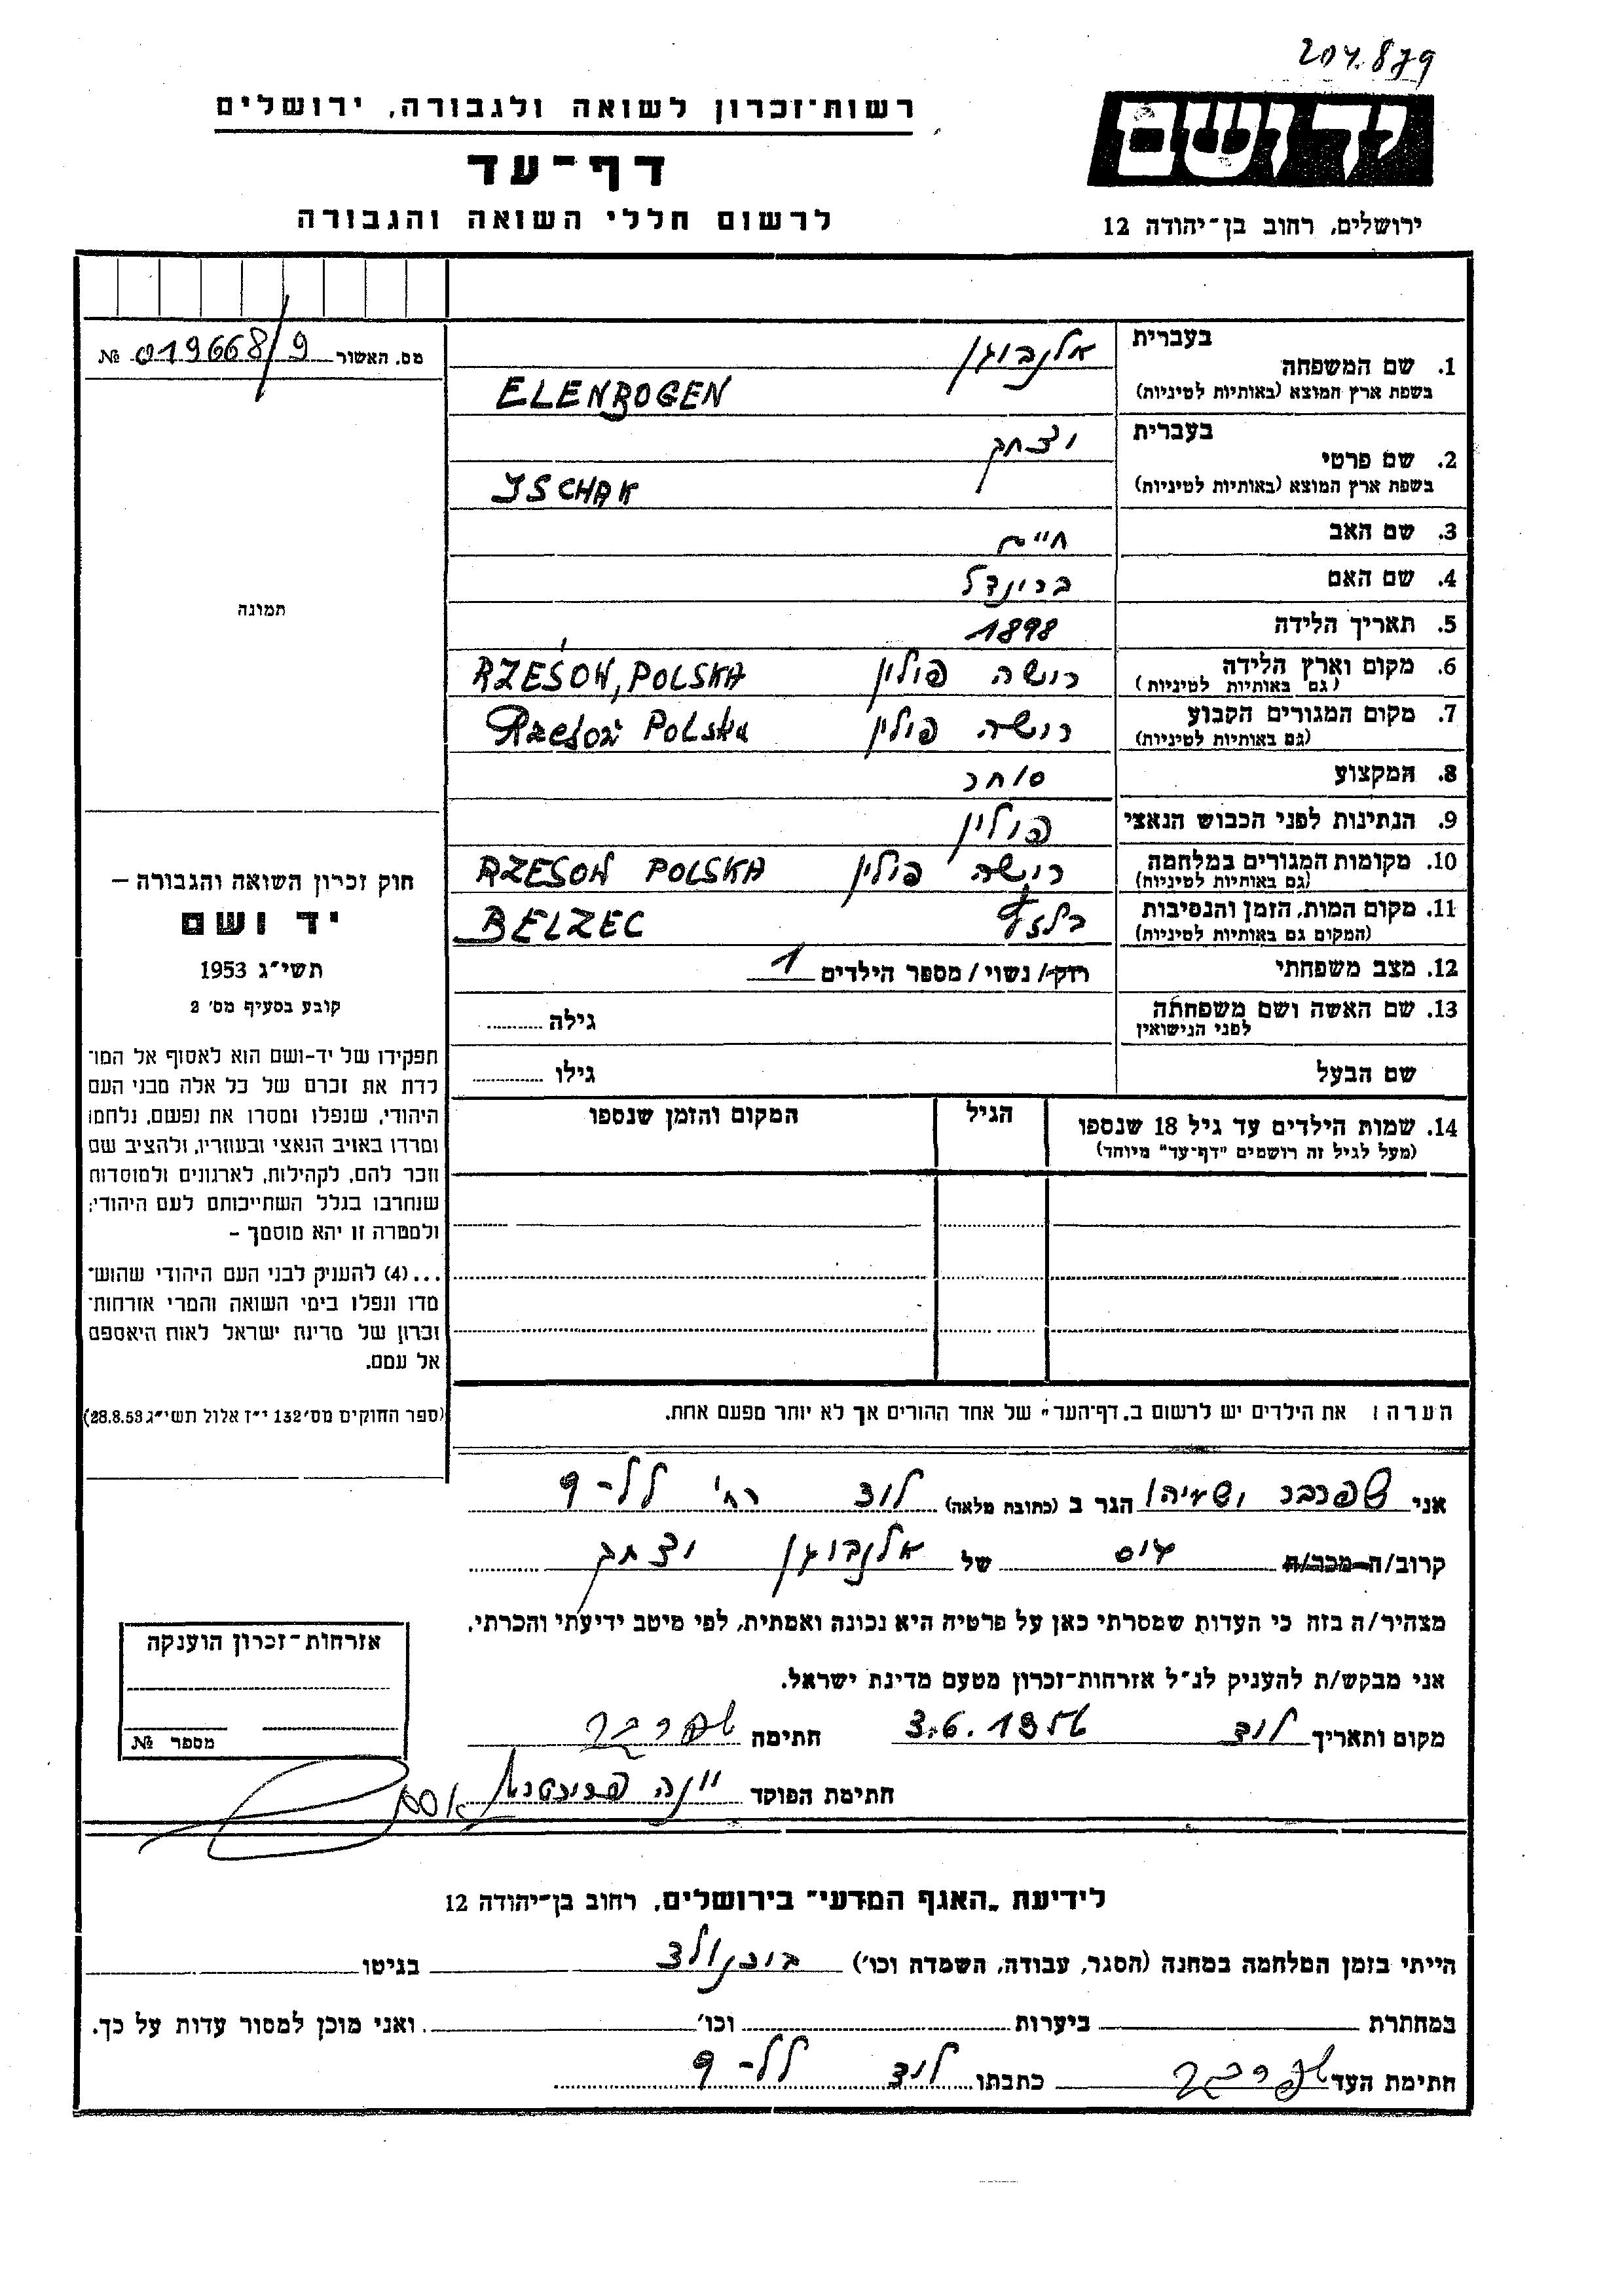 204.879
ידושם
ירושלים, רחוב בן־יהודה 12
רשות־זכרון לשואה ולגבורה, ירושלים
דף־עד
לרשום חללי השואה והגבורה
מס. האשור 019668/9 №
1. שם המשפחה בעברית אלנבוגן
בשפת ארץ המוצא (באותיות לטיניות) ELENBOGEN
2. שם פרטי בעברית יצחק
בשפת ארץ המוצא (באותיות לטיניות) ISCHAK
3. שם האב חיים
4. שם האם בריינדל
5. תאריך הלידה 1898
6. מקום וארץ הלידה רישה פולין RZEŚOW, POLSKA
(גם באותיות לטיניות)
7. מקום המגורים הקבוע רישה פולין Rzesow Polska
(גם באותיות לטיניות)
8. המקצוע סוחר
9. הנתינות לפני הכבוש הנאצי פולין
10. מקומות המגורים במלחמה רישה פולין RZESOW POLSKA
(גם באותיות לטיניות)
11. מקום המות, הזמן והנסיבות בלזץ BELZEC
(המקום גם באותיות לטיניות)
12. מצב משפחתי רוק/ נשוי / מספר הילדים 1
13. שם האשה ושם משפחתה גילה
לפני הנישואין
שם הבעל גילו
14. שמות הילדים עד גיל 18 שנספו הגיל המקום והזמן שנספו
(מעל לגיל זה רושמים "דף־עד" מיוחד)
הערה: את הילדים יש לרשום ב„דף־העד" של אחד ההורים אך לא יותר מפעם אחת.
תמונה
חוק זכרון השואה והגבורה –
יד ושם
תשי"ג 1953
קובע בסעיף מס' 2
תפקידו של יד-ושם הוא לאסוף אל המו־
לדת את זכרם של כל אלה מבני העם
היהודי, שנפלו ומסרו את נפשם, נלחמו
ומרדו באויב הנאצי ובעוזריו, ולהציב שם
וזכר להם, לקהילות, לארגונים ולמוסדות
שנחרבו בגלל השתייכותם לעם היהודי;
ולמטרה זו יהא מוסמך –
...(4) להעניק לבני העם היהודי שהוש־
מדו ונפלו בימי השואה והמרי אזרחות־
זכרון של מדינת ישראל לאות היאספם
אל עמם.
(ספר החוקים מס' 132 י"ז אלול תשי"ג 28.8.53)
אני שפרבר ישעיהו הגר ב (כתובת מלאה) לוד רח' לל-9
קרוב/ה מכר/ת גיס של אלנבוגן יצחק
מצהיר/ה בזה כי העדות שמסרתי כאן על פרטיה היא נכונה ואמתית, לפי מיטב ידיעתי והכרתי.
אני מבקש/ת להעניק לנ"ל אזרחות־זכרון מטעם מדינת ישראל.
מקום ותאריך לוד 3.6.1956 חתימה שפרבר
חתימת הפוקד יונה
אזרחות־זכרון הוענקה
מספר №
לידיעת „האגף המדעי" בירושלים, רחוב בן־יהודה 12
הייתי בזמן המלחמה במחנה (הסגר, עבודה, השמדה וכו') בוכנולד בגיטו
במחתרת ביערות וכו' ואני מוכן למסור עדות על כך.
חתימת העד שפרבר כתבתו לוד לל-9